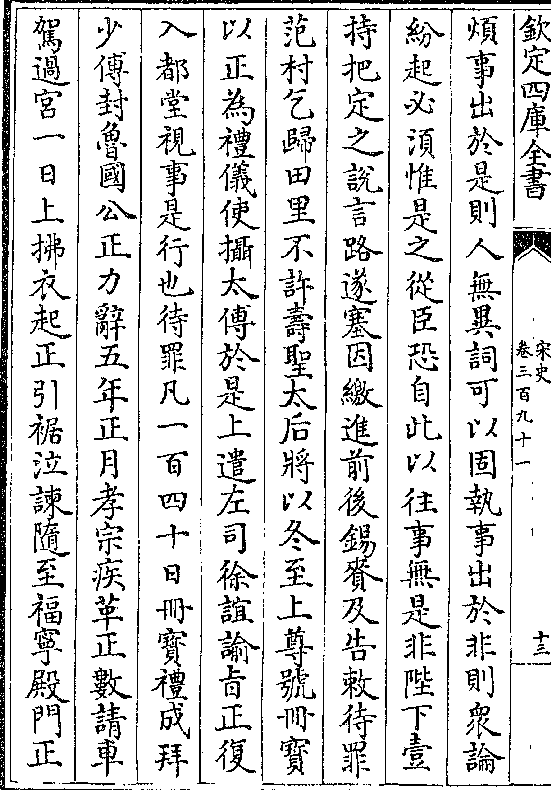 欽定四庫全書
宋史
卷三百九十一
十三
煩事出於是則人無異詞可以固執事出於非則衆論
紛起必須惟是之從臣恐自此以往事無是非陛下壹
持把定之說言路遂塞因繳進前後錫賚及告敕待罪
范村乞歸田里不許壽聖太后將以冬至上尊號冊寶
以正為禮儀使攝太傅於是上遣左司徐誼諭旨正復
入都堂視事是行也待罪凡一百四十日冊寶禮成拜
少傅封魯國公正力辭五年正月孝宗疾革正數請車
駕過宮一日上拂衣起正引裾泣諫隨至福寧殿門正